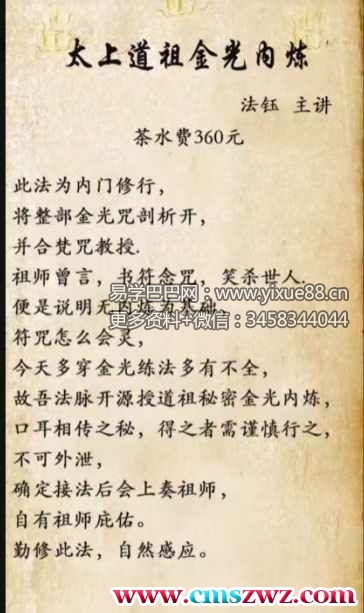 太上道祖金光内炼
法钰 主讲
茶水费360元
此法为内门修行，
将整部金光咒剖析开，
并合梵咒教授.
祖师曾言，书符念咒，笑杀世人.
易学巴巴网：www.yixue88.cn
便是说明无内炼为基础，
更多资料+微信：3458344044
符咒怎么会灵，
今天多穿金光练法多有不全，
故吾法脉开源授道祖秘密金光内炼，
口耳相传之秘，得之者需谨慎行之，
不可外泄，
确定接法后会上奏祖师，
自有祖师庇佑。
勤修此法，自然感应。
www.cmszwz.com